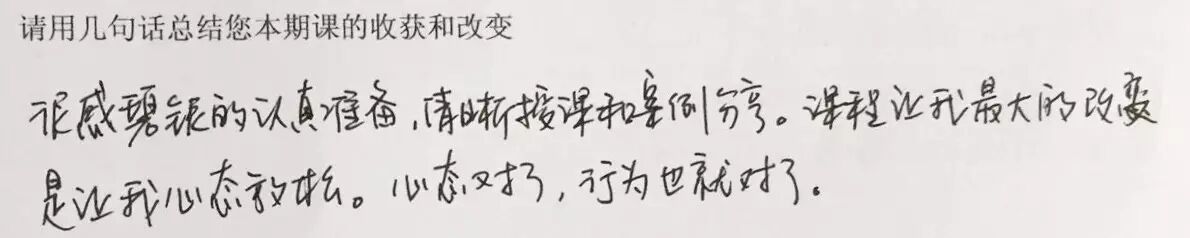 请用几句话总结您本期课的收获和改变
很感碧银的认真准备,清晰授课和案例分享。课程让我最大的改变
是让我心态放松。心态对了,行为也就对了。